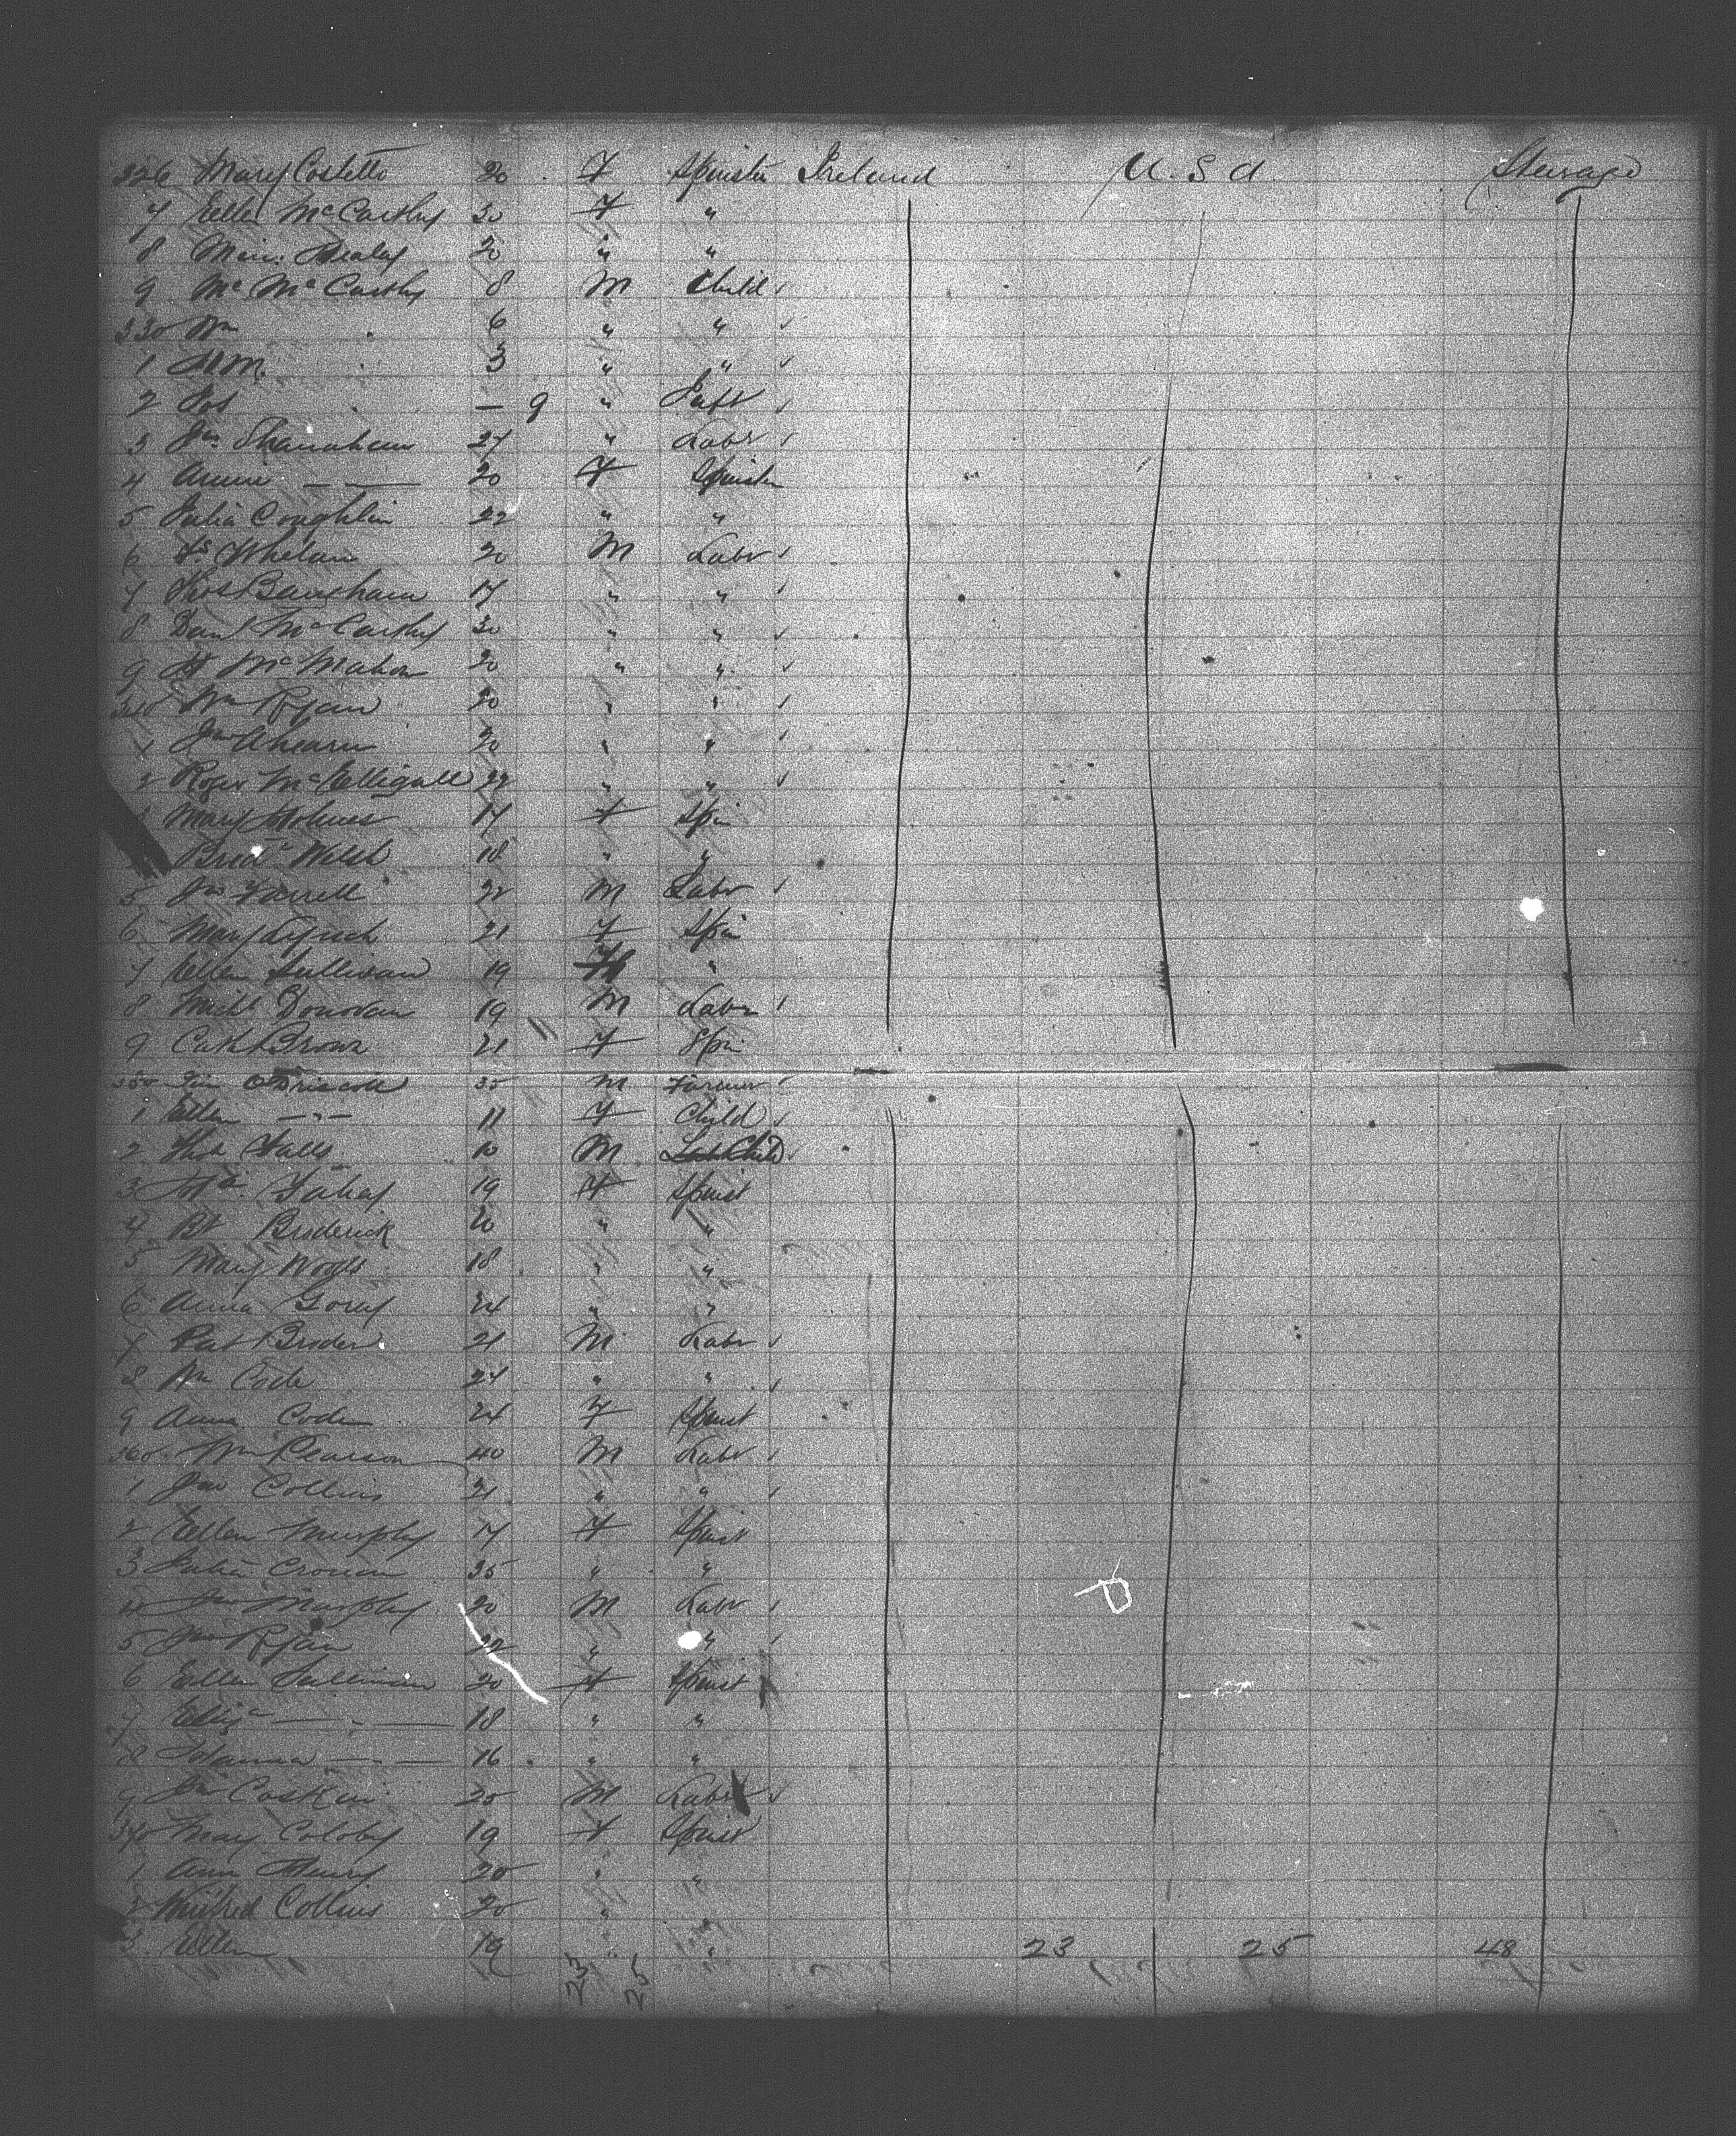 326 Mary Costello 20 F Spinster Ireland U.S.A. Steerage
7 Ellen McCarthy 30 F "
8 20 " "
9 Mc McCarthy 8 M Child
330 Wm " 6 " "
1 " 3 " "
2 Jos " — 9 " Inft
3 Jno Shanahan 27 " Labr
4 Annie — — 20 F Spinster
5 Julia Coughlin 22 " "
6 Whelan 20 M Labr
7 Thos 17 " "
8 Danl McCarthy 30 " "
9 McMahon 20 " "
340 Wm Ryan 20 " "
1 Jno Ahearn 20 " "
2 Roger McElligall 22 " "
Mary Holmes 17 F Spin
Bridt Welsh 18 " "
5 Jas Farrell 22 M Labr
6 Mary 21 F Spin
7 Ellen Sullivan 19 F "
8 Michl Donovan 19 M Labr
9 Cath Brown 21 F Spin
350 Tim O'Driscoll 35 M Farmer
1 Ellen — " — 11 F Child
2 Thos 10 M Child
3 Fahey 19 F Spinst
4 Bt Broderick 20 " "
5 Mary Woods 18 " "
6 Anna 24 " "
7 Pat Broder 21 M Labr
8 Wm Code 24 " "
9 Anna Code 24 F Spinst
360 Wm Pearson 40 M Labr
1 Jno Collins 21 " "
2 Ellen Murphy 17 F Spinst
3 Julia Cronin 35 " "
4 Jno Murphy 20 M Labr
5 Jno Ryan 22 " "
6 Ellen Sullivan 20 F Spinst
7 Eliza — " — 18 " "
8 Hanna — " — 16 " "
9 Jno 25 M Labr
370 Mary 19 F Spinst
1 Ann Henry 20 " "
2 Winifred Collins 20 " "
3 Ellen 19 " " 23 25 48
23 25